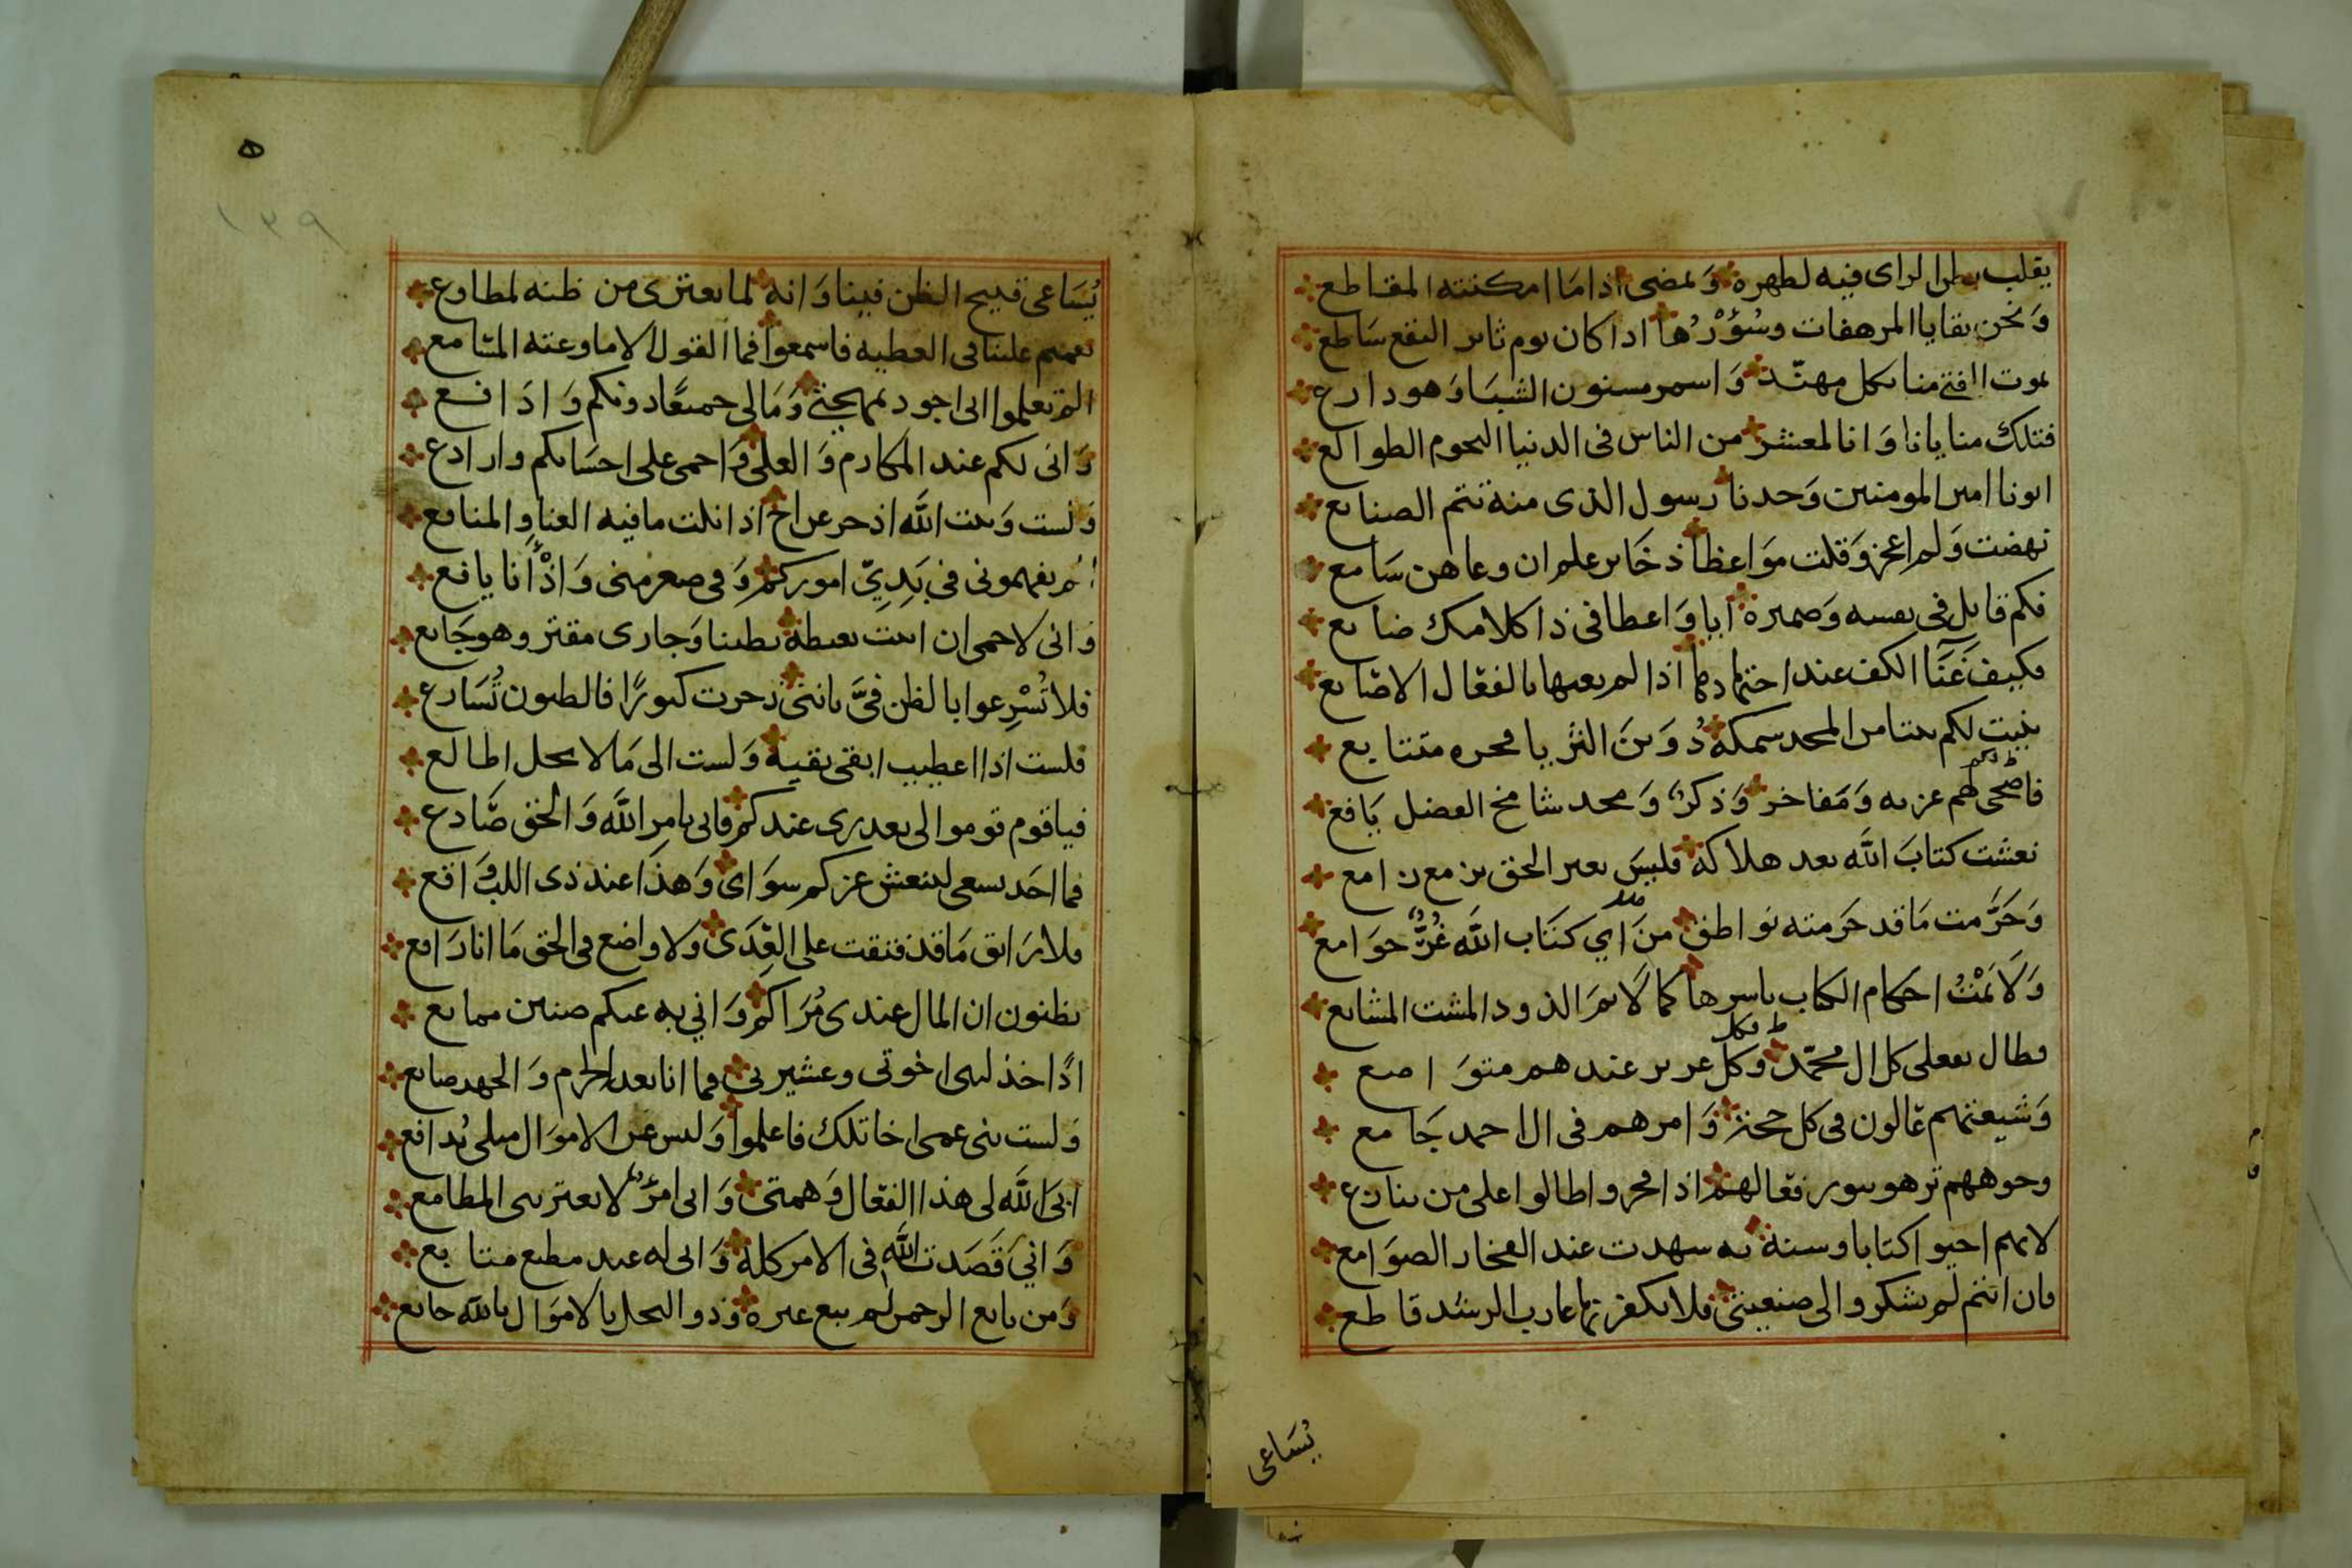 يقلب بطن الراى فيه لظهره وَيمضى اذا مَا امكنته المقاطع
وَنحن بقايا المرهفات وسُؤْرُها اذا كان يوم ثائر النقع سَاطع
يموت الفتى منا بكل مهنّد وَاسمر مسنون الشبَا وَهو دارع
فتلك منايانا وَانا لمعشر من الناس فى الدنيا النجوم الطوالع
ابونا امير المومنين وَجدنا رسول الذى منه تتم الصنائع
نهضت وَلم اعجز وَقلت موَاعظا ذخَاير علم ان وعاهن سَامع
فكم قايل فى نفسه وَضميره ايا وَاعظا فى ذا كلامك ضايع
فكيف غَنَآ الكف عند اذا لم يعنها بالفعَال الاصَابع
بنيت لكم بيتا من المجد سمكه دُوَينَ الثريا فخره متتايع
فاضحى لهم عز به وَمَفاخر وَذكرٌ وَمجد شامخ الفضل يَافع
نعشت كتابَ الله بعد هلاكه فليسَ بغير الحق يزمع زامع
وَحَرَّمت مَا قد حَرمته نواطق منَ اي كتَاب الله غُرٌّ جوَامع
وَلَاَمْتُ احكام الكتاب باسرها كما لَاَمَ الذود المشت المشايع
فطال بفعلى كل ال محمّد وكل عزيز عندهم متوَاضع
وَشيعتهم عَالون فى كل حجة وَامرهم فى ال احمد جَامع
وجوههم تزهو بنور فعَالهم اذا فخروا طالوا على من ينازع
لانهم احيوا كتابا وسنة به شهدت عند الفخار الصوَامع
فان انتم لم تشكروا لى صنيعتى فلا يكفرنها عازب الرشد قاطع
يُسَاعى
٥
١٣٩
يُسَاعى قبيح الظن فينا وَانه لما يعترى من ظنه لمطاوع
نعمتم علينا فى العطيه فاسمعوا فما القول الا ما وعته المسَامع
الم تعلموا انى اجود بمهجتى وَمَالى جميعًا دونكم وَادَافع
وَانى لكم عند المكارم وَالعلى وَاحمى على احسَابكم واراِدع
وَلست وَبيت الله اذخر عن اخ اذا نلت ما فيه الغنا والمنافع
الم تفهمونى فى بَدِيّ اموركم وَفى صغر منى وَاذْ أنا يافع
وَانى لاحمى ان ابيت بغبطة بطينا وَجارى مقتر وهو جَايع
فلا تُسْرِعوا بالظن فىَّ باننى ذخرت كنوزًا فالظنون تُسَارع
فلست اذا اعطيت ابقى بقية وَلست الى مَا لا يحل اطالع
فيا قوم قوموا لى بعذرى عندكم فانى بامر الله وَالحق صَادع
فما احَد يسعى لينعش عزكم سوَاى وَهذا عند ذى اللب وَاقع
فلا رَاتق مَا قد فتقت على العِدَى ولا واضع فى الحق مَا انا رَافع
يظنون ان المال عندى مُرَاكم وَاني به عنكم ضنين ممانع
اذًا خذلتنى اخوتى وعشيرتى فما انا بعد الحزم وَالجهد صانع
وَلست بنى عمى اخا تلك فاعلموا وَليس عن الاموَال مثلى يُدافع
ابىَ الله لى هذا الفعَال وَهمتى وَانى امرؤٌ لا تعترينى المطامع
وَانيَ قَصَدت الله فى الامر كله وَانى له عبد مطيع متابع
وَمن بايع الرحمن لم يبع غيره وَذو البخل بالاموَال بالله خانع